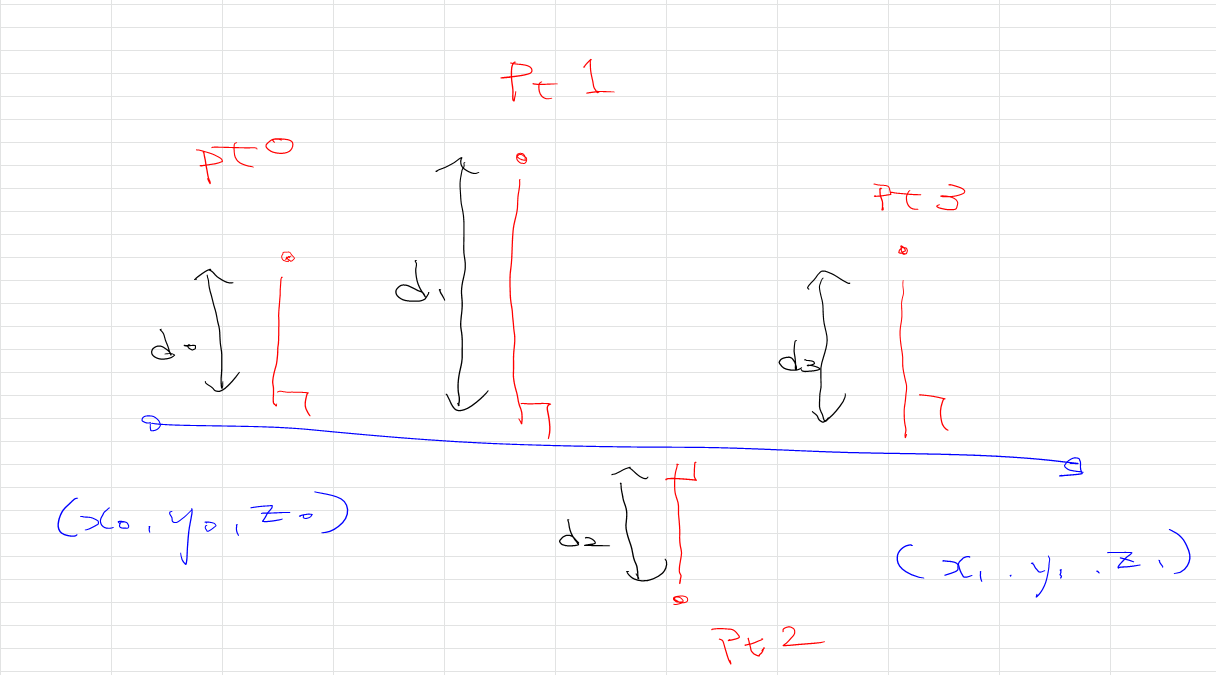 Pt 1
pt 0
Pt 3
d1
d0
d3
(x0, y0, z0)
d2
(x1, y1, z1)
Pt 2